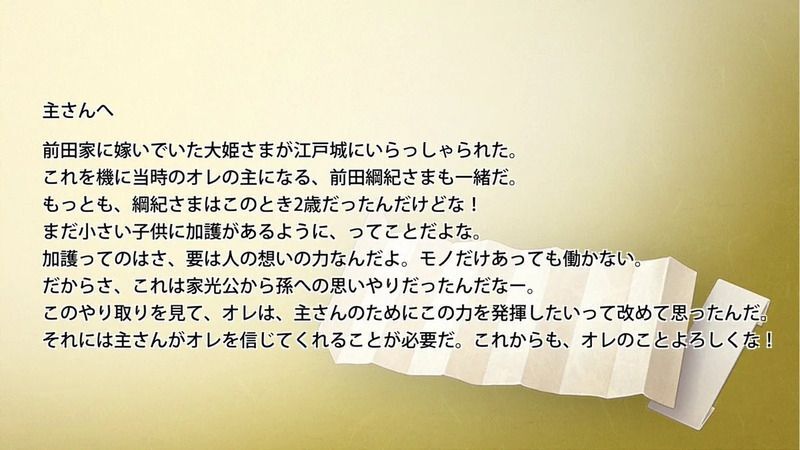 主さんへ
前田家に嫁いでいた大姫さまが江戸城にいらっしゃられた。
これを機に当時のオレの主になる、前田綱紀さまも一緒だ。
もっとも、綱紀さまはこのとき2歳だったんだけどな！
まだ小さい子供に加護があるように、ってことだよな。
加護ってのはさ、要は人の想いの力なんだよ。モノだけあっても働かない。
だからさ、これは家光公から孫への思いやりだったんだなー。
このやり取りを見て、オレは、主さんのためにこの力を発揮したいって改めて思ったんだ。
それには主さんがオレを信じてくれることが必要だ。これからも、オレのことよろしくな！